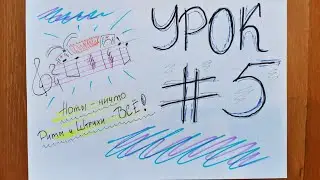 УРОК
#5
Ноты - ничто
Ритм и Штрихи - ВСЁ!